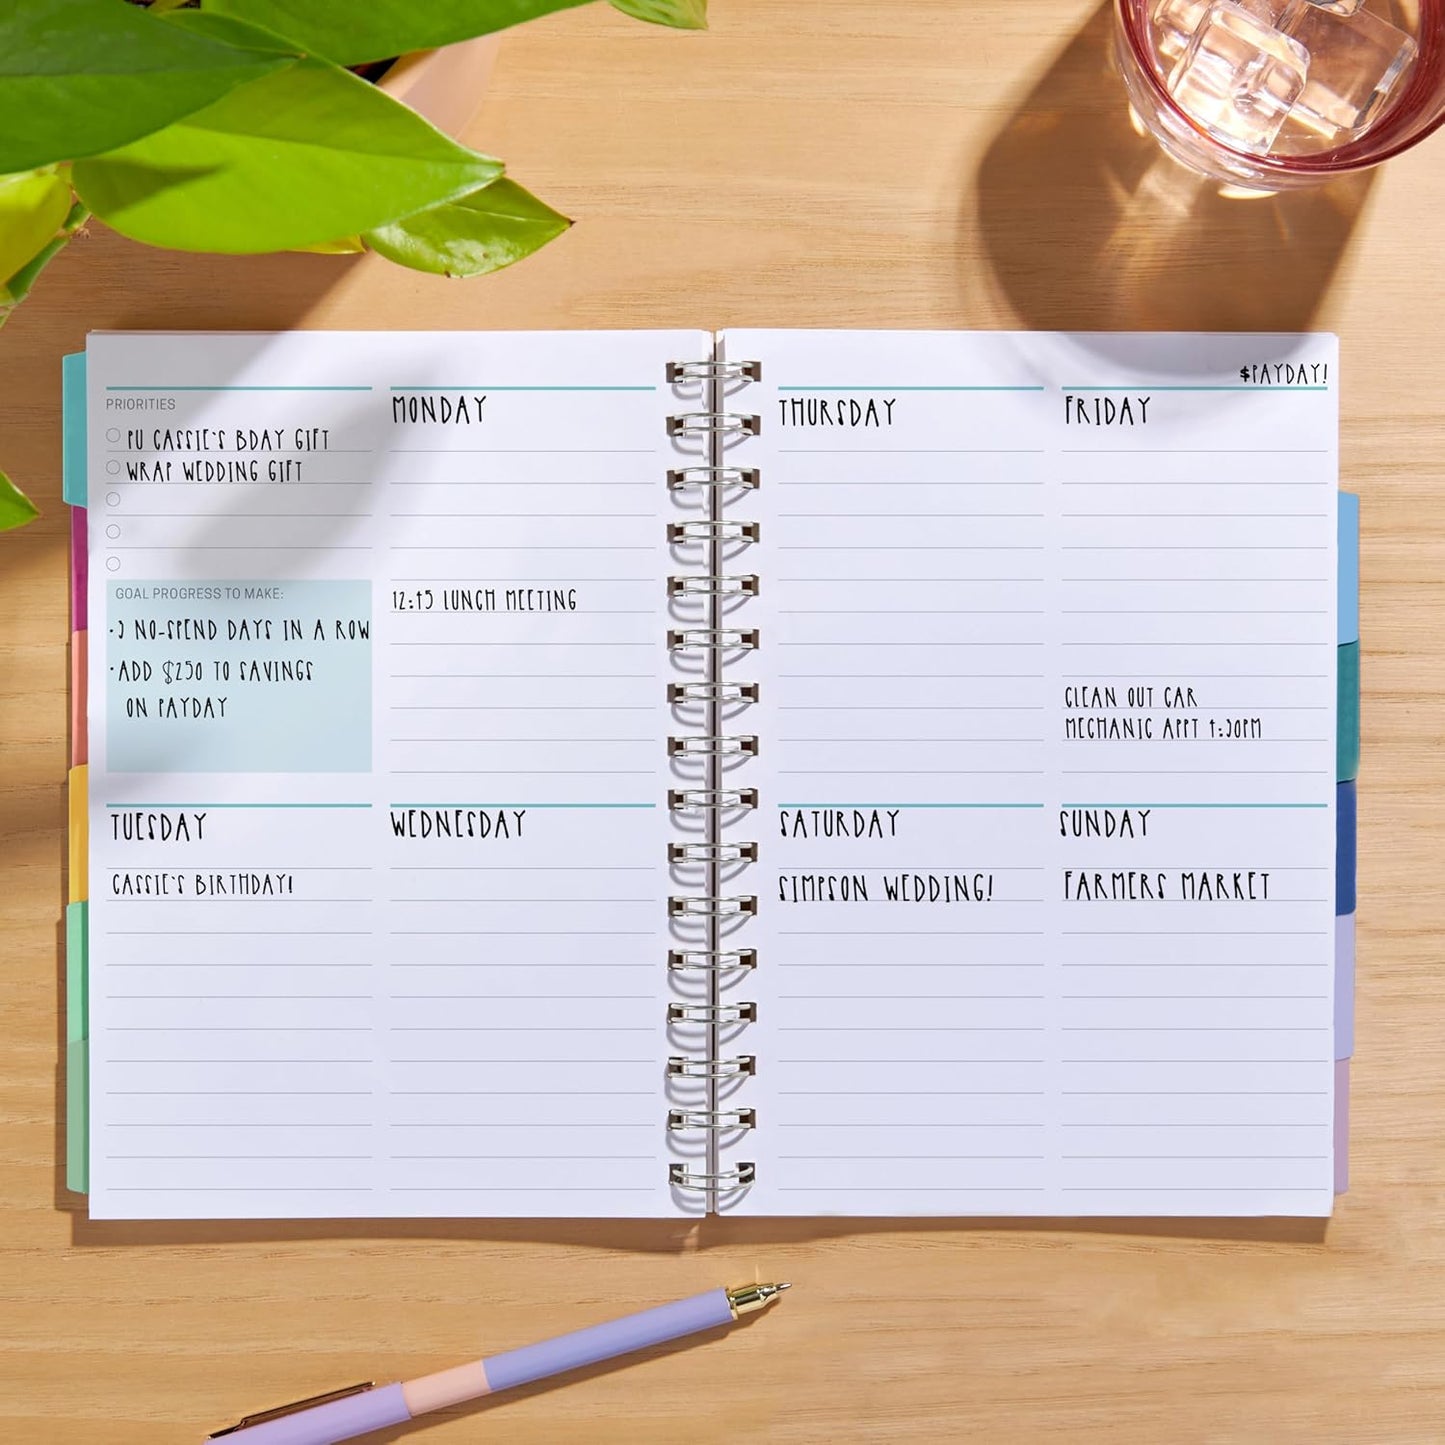 PRIORITIES
PU CASSIE'S BDAY GIFT
WRAP WEDDING GIFT
GOAL PROGRESS TO MAKE:
•3 NO-SPEND DAYS IN A ROW
•ADD $250 TO SAVINGS
ON PAYDAY
MONDAY
12:45 LUNCH MEETING
TUESDAY
CASSIE'S BIRTHDAY!
WEDNESDAY
THURSDAY
$PAYDAY!
FRIDAY
CLEAN OUT CAR
MECHANIC APPT 4:30PM
SATURDAY
SIMPSON WEDDING!
SUNDAY
FARMERS MARKET